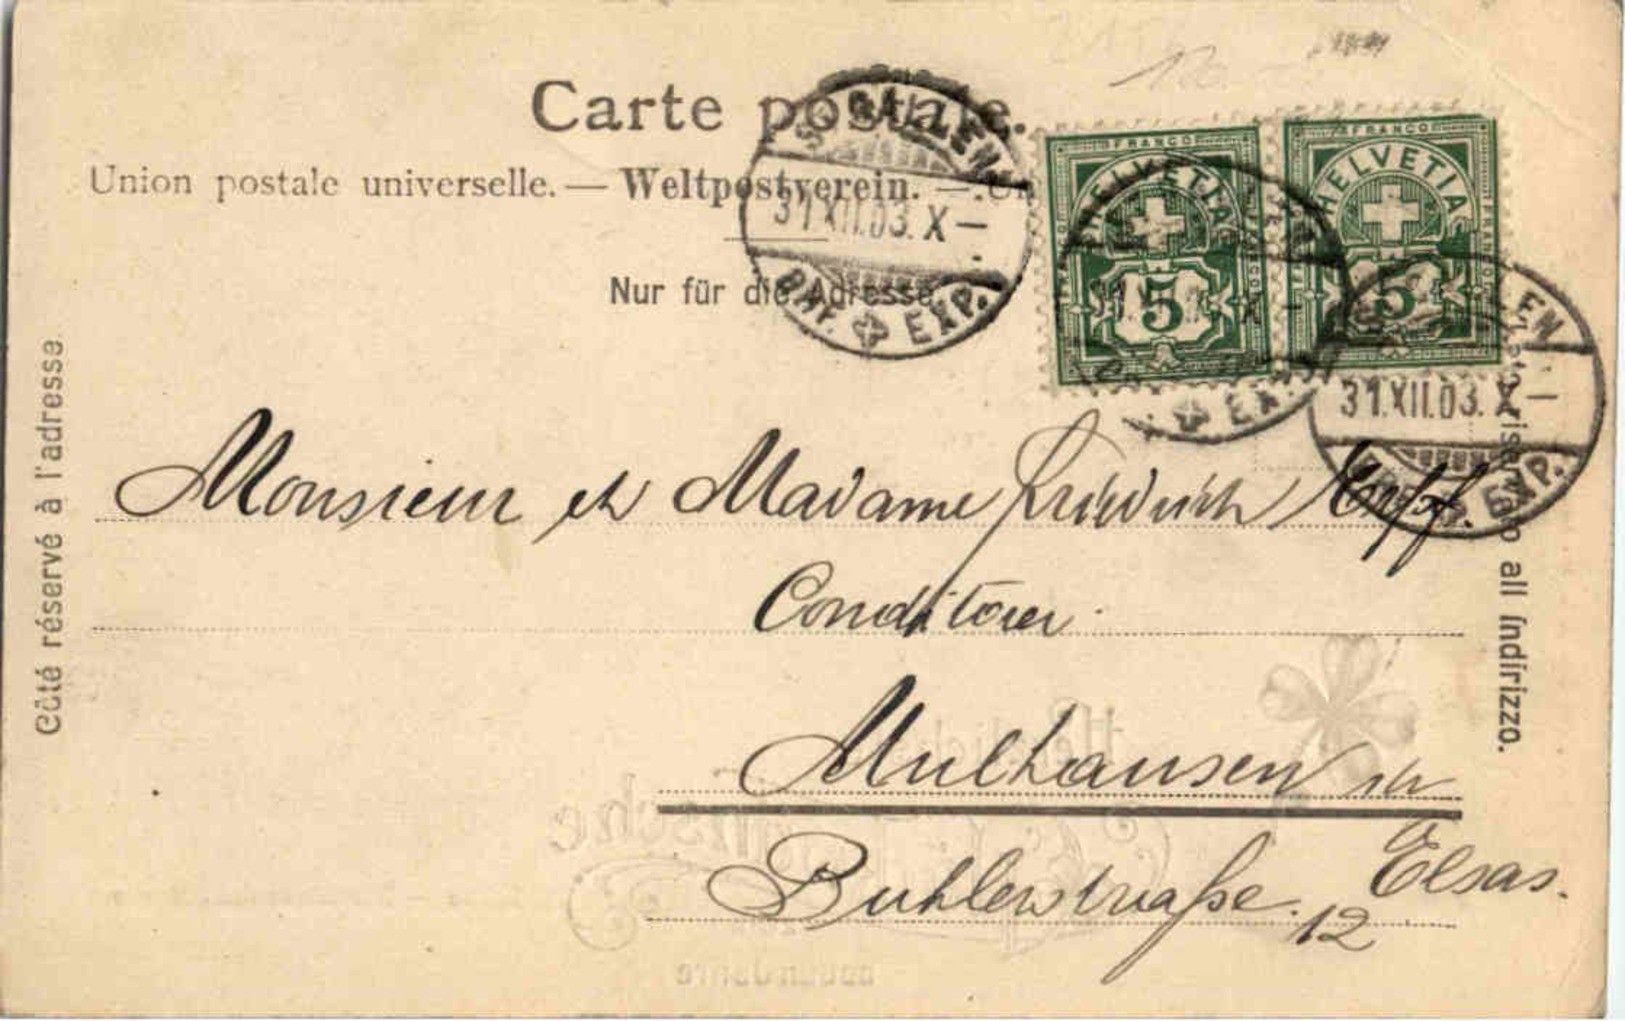 Carte postale.
Union postale universelle. — Weltpostverein. —
Nur für die Adresse.
ST. GALLEN
31.XII.03. X—
BHF. EXP.
FRANCO
HELVETIA
5
FRANCO
HELVETIA
5
EXP.
31.XII.03. X—
EXP.
Côté réservé à l'adresse
all indirizzo.
Monsieur et Madame Friedrich
Conditorei
Mulhausen in
Elsas.
Buhlerstraße. 12